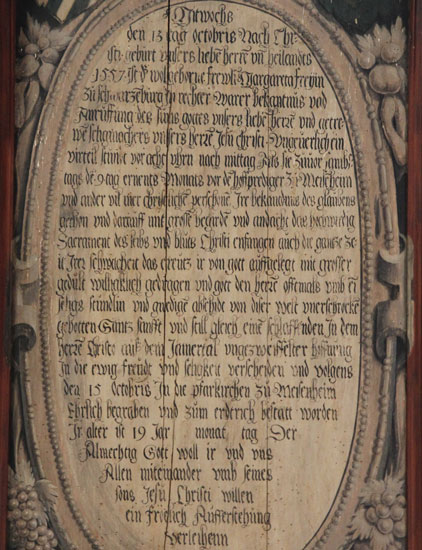 Mitwochs
den 13 tage octobris Nach Chri-
sti geburt unsers liebē herrē uñ heilandts
1557 ist d wolgeborne frewlē Margareta freyin
zu schwarzeburg in rechter warer bekantnus und
Anruffung des suns gottes unsers liebē herrē und getre-
wē seligmachers unsers herrē Jesu christi ungeuerlich ein
virteil stund vor acht uhren nach mittag Als sie zuvor sambs-
tags dē 9 tag ernents Monats vor dē hoffprediger zu Meisenheim
und ander vil mer christlichē personē Ire bekandnus des glaubens
gethon und darauff mit großē begirdē und andacht das hochwirdig
Sacrament des leibs und bluts Christi enfingen auch die gantze ze-
it Irer schwacheit das creutz ir von gott auffgelegt mit groster
gedult williglich gedragen und got den herrē oftemals umb ein
seligs stundlin und gnedige abschide von diser welt unerschrockē
gebotten Gantz sanfft und still gleich einē schlaffenden In dem
herrē Christo aus dem Jamertal ungezweiffelter hoffnung
In die ewig freude und seligkeit verscheiden und volgens
den 15 octobris In die pfarkirchen zu Meisenheim
Ehrlich begraben und zum erderich bestatt worden
Ir alter ist 19 Jar monat tag Der
Almechtig Gott woll ir und uns
Allen miteinander umb seines
sons Jesu Christi willen
ein frölich Aufferstehung
Verleihenn